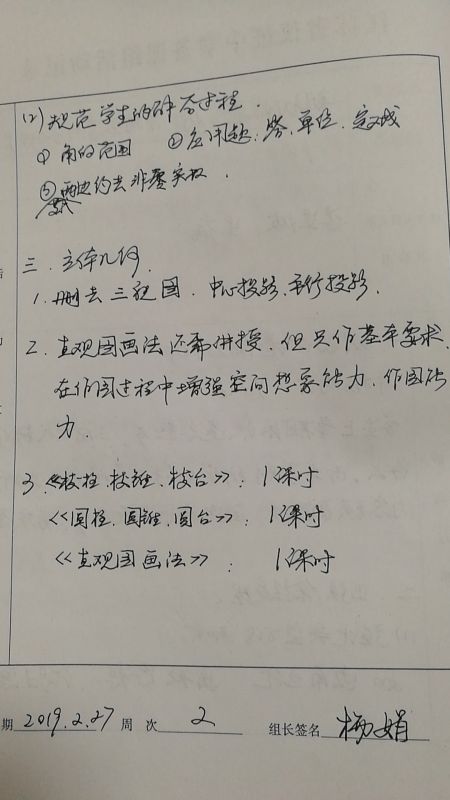 (2) 规范学生的解答过程.
① 角的范围 ② 应用题:答、单位、定义域
③ 两边约去非零实数.
三. 立体几何.
1. 删去三视图. 中心投影、平行投影.
2. 直观图画法还需讲授, 但只作基本要求.
在作图过程中增强空间想象能力、作图能
力.
3. 《棱柱、棱锥、棱台》: 1课时
《圆柱、圆锥、圆台》: 1课时
《直观图画法》: 1课时
期 2019.2.27 周次 2 组长签名 杨娟